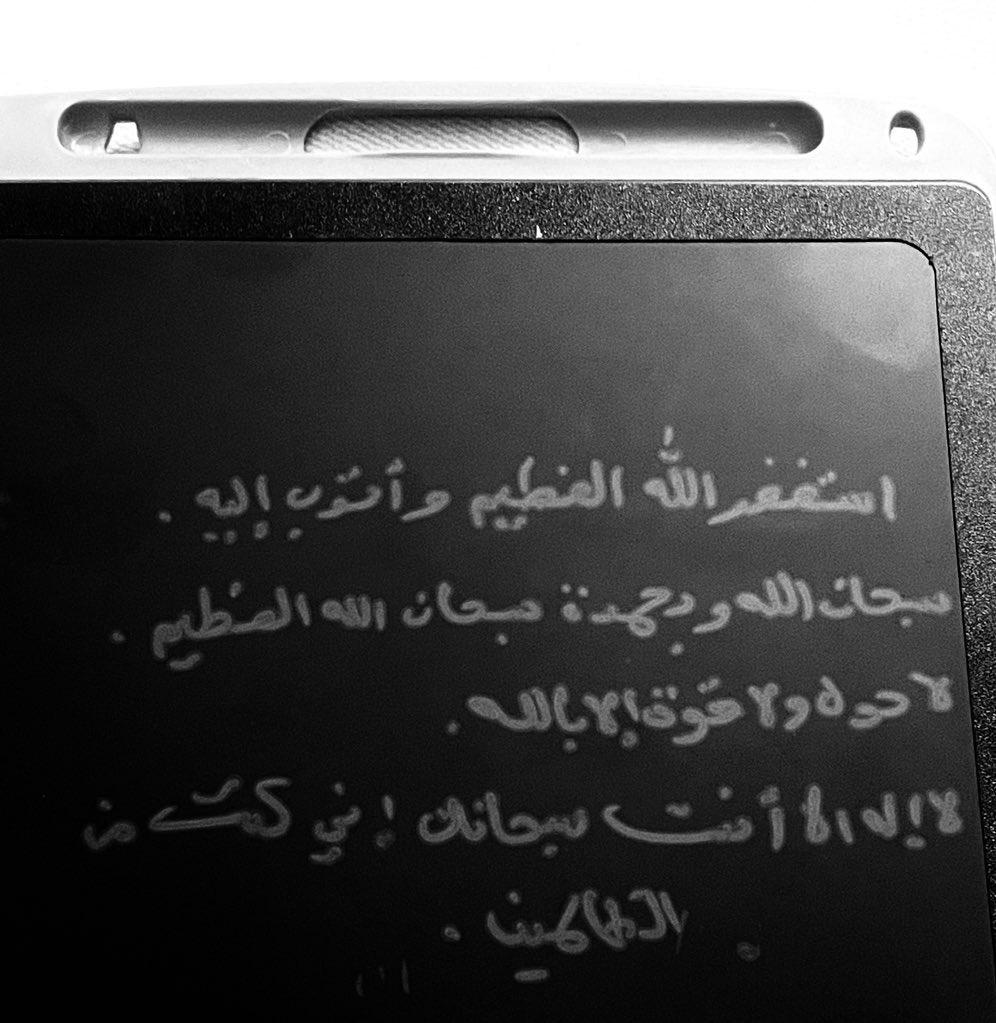 استغفر الله العظيم وأتوب إليه .
سبحان الله وبحمدة سبحان الله العظيم .
لا حول ولا قوة إلا بالله .
لا إله الا أنت سبحانك إني كنت من
الظالمين .